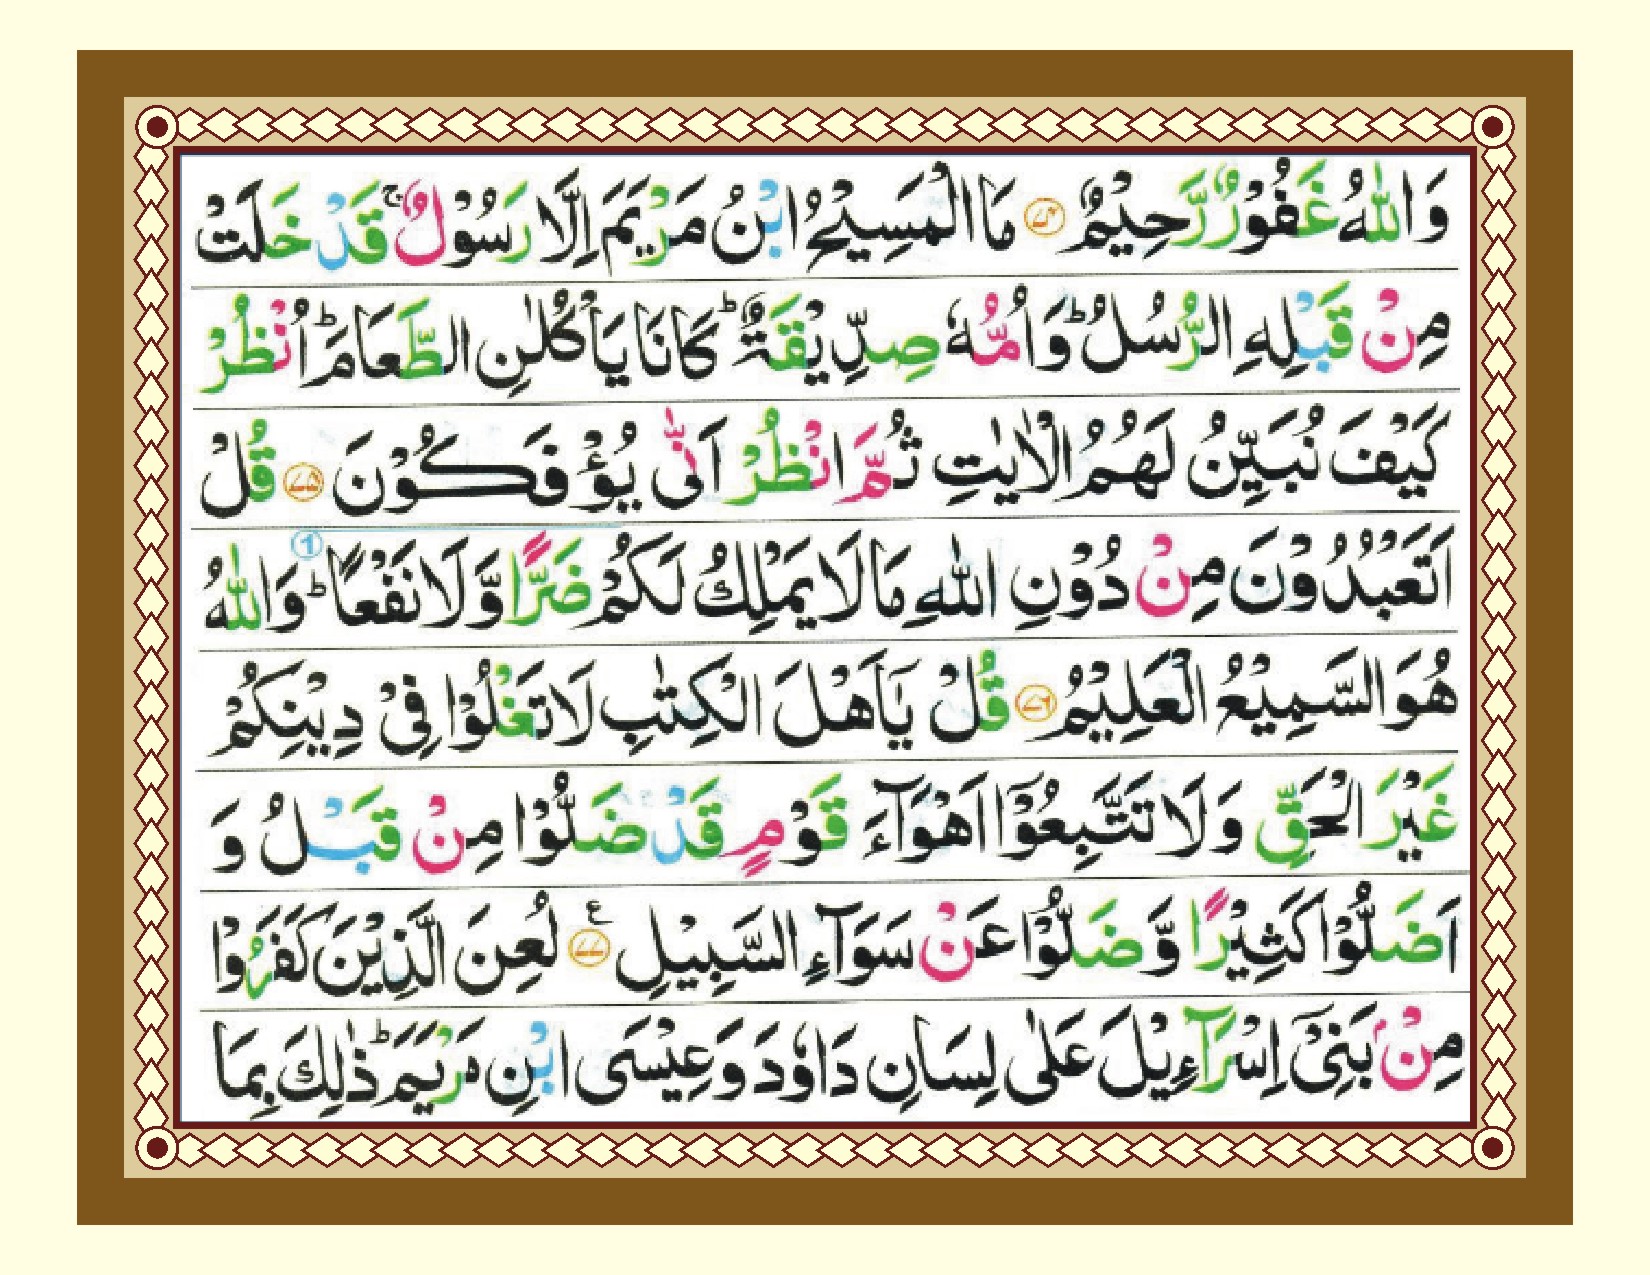 وَاللّٰهُ غَفُوْرٌ رَّحِيْمٌ ﴿۷۴﴾ مَا الْمَسِيْحُ ابْنُ مَرْيَمَ اِلَّا رَسُوْلٌ ۚ قَدْ خَلَتْ
مِنْ قَبْلِهِ الرُّسُلُ ؕ وَاُمُّهٗ صِدِّيْقَةٌ ؕ كَانَا يَاْكُلٰنِ الطَّعَامَ ؕ اُنْظُرْ
كَيْفَ نُبَيِّنُ لَهُمُ الْاٰيٰتِ ثُمَّ انْظُرْ اَنّٰى يُؤْفَكُوْنَ ﴿۷۵﴾ قُلْ
اَتَعْبُدُوْنَ مِنْ دُوْنِ اللّٰهِ مَا لَا يَمْلِكُ لَكُمْ ضَرًّا وَّلَا نَفْعًا ؕ ① وَاللّٰهُ
هُوَ السَّمِيْعُ الْعَلِيْمُ ﴿۷۶﴾ قُلْ يٰۤاَهْلَ الْكِتٰبِ لَا تَغْلُوْا فِيْ دِيْنِكُمْ
غَيْرَ الْحَقِّ وَلَا تَتَّبِعُوْۤا اَهْوَآءَ قَوْمٍ قَدْ ضَلُّوْا مِنْ قَبْلُ وَ
اَضَلُّوْا كَثِيْرًا وَّضَلُّوْا عَنْ سَوَآءِ السَّبِيْلِ ﴿۷۷﴾ ع لُعِنَ الَّذِيْنَ كَفَرُوْا
مِنْۢ بَنِيْۤ اِسْرَآءِيْلَ عَلٰى لِسَانِ دَاوٗدَ وَعِيْسَى ابْنِ مَرْيَمَ ؕ ذٰلِكَ بِمَا